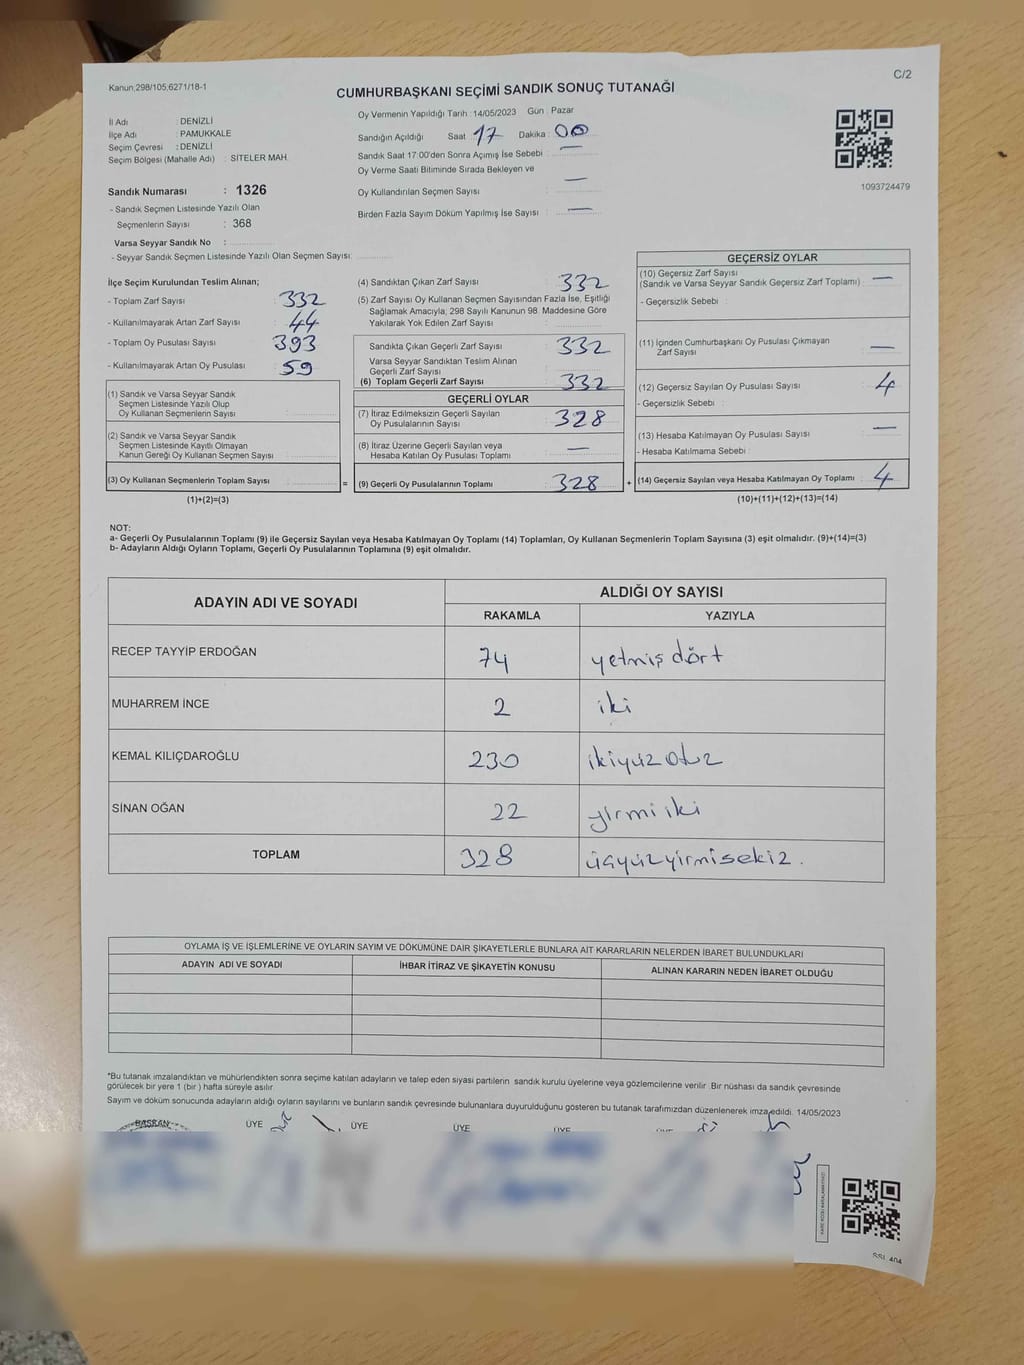 Kanun;298/105,6271/18-1
C/2
CUMHURBAŞKANI SEÇİMİ SANDIK SONUÇ TUTANAĞI
İl Adı : DENİZLİ
İlçe Adı : PAMUKKALE
Seçim Çevresi : DENİZLİ
Seçim Bölgesi (Mahalle Adı) : SİTELER MAH.
Sandık Numarası : 1326
- Sandık Seçmen Listesinde Yazılı Olan
Seçmenlerin Sayısı : 368
Varsa Seyyar Sandık No :
- Seyyar Sandık Seçmen Listesinde Yazılı Olan Seçmen Sayısı:
Oy Vermenin Yapıldığı Tarih : 14/05/2023 Gün : Pazar
Sandığın Açıldığı Saat 17 Dakika : 00
Sandık Saat 17:00'den Sonra Açımış İse Sebebi : —
Oy Verme Saati Bitiminde Sırada Bekleyen ve
Oy Kullandırılan Seçmen Sayısı : —
Birden Fazla Sayım Döküm Yapılmış İse Sayısı : —
1093724479
İlçe Seçim Kurulundan Teslim Alınan;
- Toplam Zarf Sayısı : 332
- Kullanılmayarak Artan Zarf Sayısı : 44
- Toplam Oy Pusulası Sayısı : 393
- Kullanılmayarak Artan Oy Pusulası : 59
(1) Sandık ve Varsa Seyyar Sandık
Seçmen Listesinde Yazılı Olup
Oy Kullanan Seçmenlerin Sayısı :
(2) Sandık ve Varsa Seyyar Sandık
Seçmen Listesinde Kayıtlı Olmayan
Kanun Gereği Oy Kullanan Seçmen Sayısı :
(3) Oy Kullanan Seçmenlerin Toplam Sayısı :
(1)+(2)=(3)
(4) Sandıktan Çıkan Zarf Sayısı : 332
(5) Zarf Sayısı Oy Kullanan Seçmen Sayısından Fazla İse, Eşitliği
Sağlamak Amacıyla; 298 Sayılı Kanunun 98. Maddesine Göre
Yakılarak Yok Edilen Zarf Sayısı :
Sandıkta Çıkan Geçerli Zarf Sayısı : 332
Varsa Seyyar Sandıktan Teslim Alınan
Geçerli Zarf Sayısı :
(6) Toplam Geçerli Zarf Sayısı : 332
GEÇERLİ OYLAR
(7) İtiraz Edilmeksizin Geçerli Sayılan
Oy Pusulalarının Sayısı : 328
(8) İtiraz Üzerine Geçerli Sayılan veya
Hesaba Katılan Oy Pusulası Toplamı : —
= (9) Geçerli Oy Pusulalarının Toplamı : 328 +
GEÇERSİZ OYLAR
(10) Geçersiz Zarf Sayısı
(Sandık ve Varsa Seyyar Sandık Geçersiz Zarf Toplamı) : —
- Geçersizlik Sebebi :
(11) İçinden Cumhurbaşkanı Oy Pusulası Çıkmayan
Zarf Sayısı : —
(12) Geçersiz Sayılan Oy Pusulası Sayısı : 4
- Geçersizlik Sebebi :
(13) Hesaba Katılmayan Oy Pusulası Sayısı : —
- Hesaba Katılmama Sebebi :
(14) Geçersiz Sayılan veya Hesaba Katılmayan Oy Toplamı : 4
(10)+(11)+(12)+(13)=(14)
NOT:
a- Geçerli Oy Pusulalarının Toplamı (9) ile Geçersiz Sayılan veya Hesaba Katılmayan Oy Toplamı (14) Toplamları, Oy Kullanan Seçmenlerin Toplam Sayısına (3) eşit olmalıdır. (9)+(14)=(3)
b- Adayların Aldığı Oyların Toplamı, Geçerli Oy Pusulalarının Toplamına (9) eşit olmalıdır.
ADAYIN ADI VE SOYADI
ALDIĞI OY SAYISI
RAKAMLA YAZIYLA
RECEP TAYYİP ERDOĞAN 74 yetmiş dört
MUHARREM İNCE 2 iki
KEMAL KILIÇDAROĞLU 230 ikiyüz otuz
SİNAN OĞAN 22 yirmi iki
TOPLAM 328 üçyüzyirmisekiz.
OYLAMA İŞ VE İŞLEMLERİNE VE OYLARIN SAYIM VE DÖKÜMÜNE DAİR ŞİKAYETLERLE BUNLARA AİT KARARLARIN NELERDEN İBARET BULUNDUKLARI
ADAYIN ADI VE SOYADI İHBAR İTİRAZ VE ŞİKAYETİN KONUSU ALINAN KARARIN NEDEN İBARET OLDUĞU
*Bu tutanak imzalandıktan ve mühürlendikten sonra seçime katılan adayların ve talep eden siyasi partilerin sandık kurulu üyelerine veya gözlemcilerine verilir. Bir nüshası da sandık çevresinde
görülecek bir yere 1 (bir) hafta süreyle asılır.
Sayım ve döküm sonucunda adayların aldığı oyların sayılarını ve bunların sandık çevresinde bulunanlara duyurulduğunu gösteren bu tutanak tarafımızdan düzenlenerek imza edildi. 14/05/2023
BAŞKAN ÜYE ÜYE ÜYE ÜYE